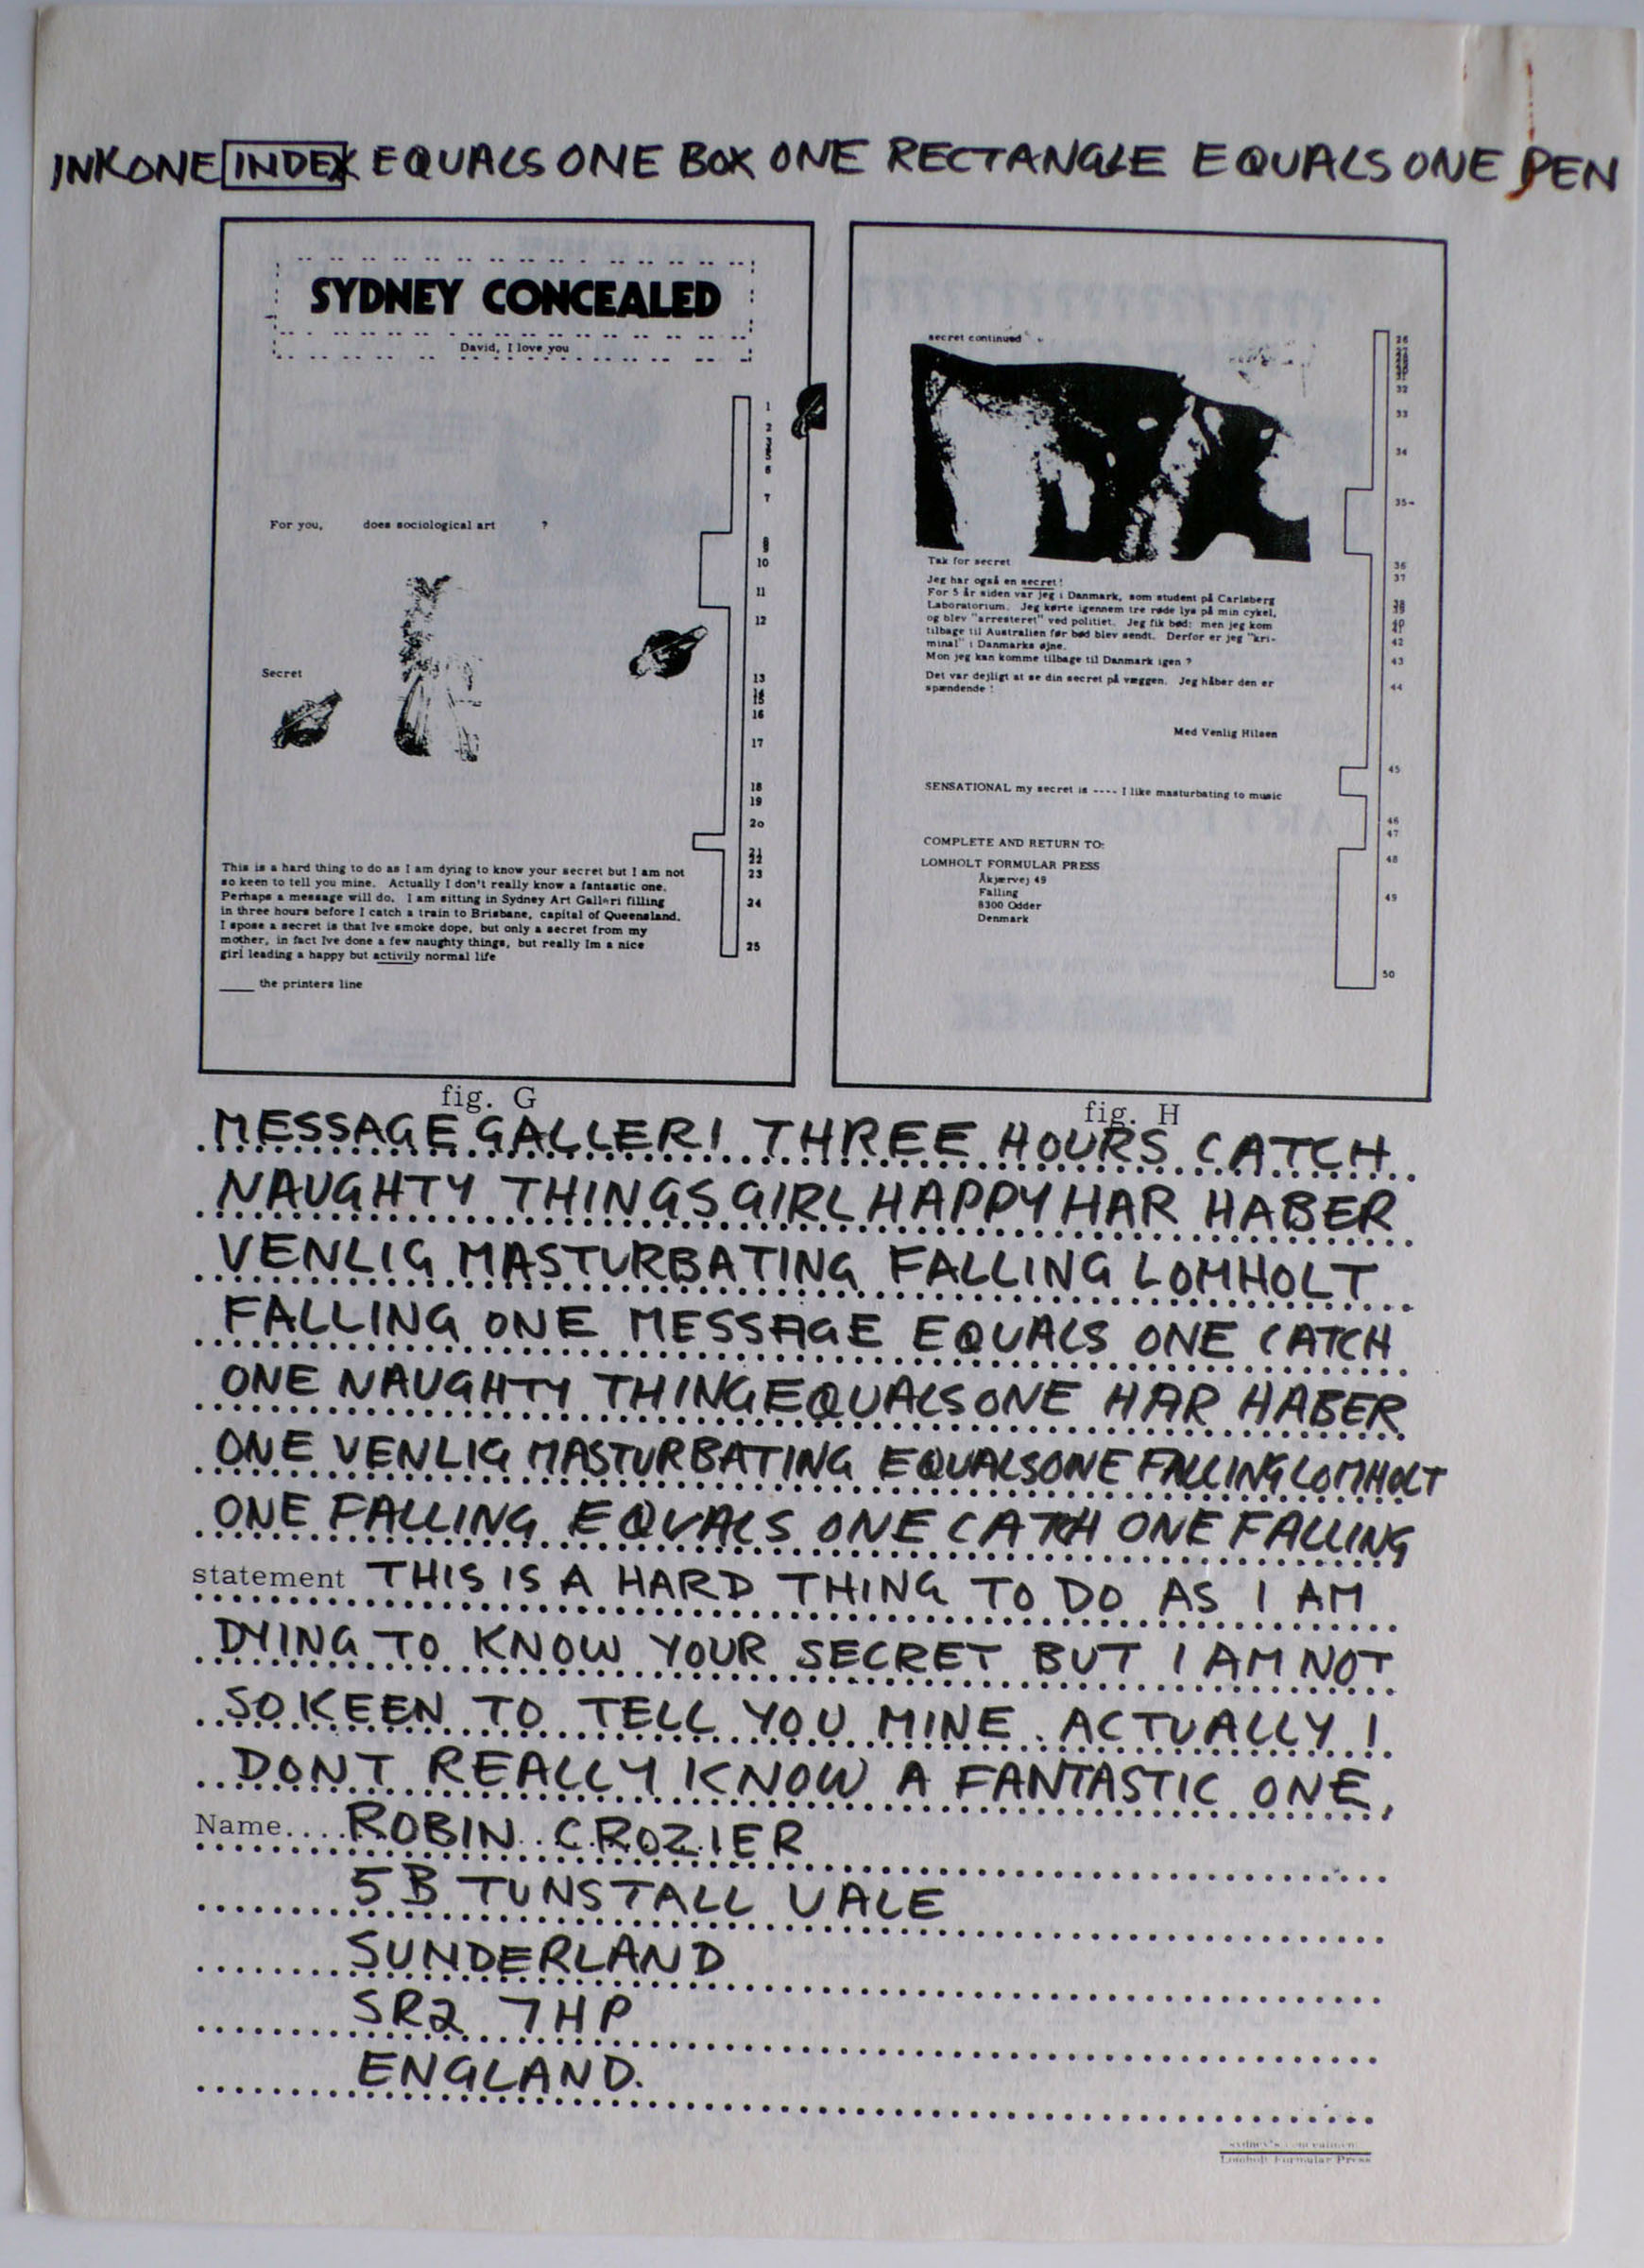 INK ONE INDEX EQUALS ONE BOX ONE RECTANGLE EQUALS ONE PEN
SYDNEY CONCEALED
David, I love you
1
2
3
5
6
7
8
9
10
11
12
13
14
15
16
17
18
19
2o
21
22
23
24
25
For you, does sociological art ?
Secret
This is a hard thing to do as I am dying to know your secret but I am not
so keen to tell you mine. Actually I don't really know a fantastic one.
Perhaps a message will do. I am sitting in Sydney Art Galleri filling
in three hours before I catch a train to Brisbane, capital of Queensland.
I spose a secret is that Ive smoke dope, but only a secret from my
mother, in fact Ive done a few naughty things, but really Im a nice
girl leading a happy but activily normal life
____ the printers line
fig. G
secret continued
26
32
33
34
35
36
37
38
39
40
41
42
43
44
45
46
47
48
49
50
Tak for secret
Jeg har også en secret!
For 5 år siden var jeg i Danmark, som student på Carlsberg
Laboratorium. Jeg kørte igennem tre røde lys på min cykel,
og blev "arresteret" ved politiet. Jeg fik bød: men jeg kom
tilbage til Australien før bød blev sendt. Derfor er jeg "kri-
minal" i Danmarks øjne.
Mon jeg kan komme tilbage til Danmark igen ?
Det var dejligt at se din secret på væggen. Jeg håber den er
spændende !
Med Venlig Hilsen
SENSATIONAL my secret is ---- I like masturbating to music
COMPLETE AND RETURN TO:
LOMHOLT FORMULAR PRESS
Åkjærvej 49
Falling
8300 Odder
Denmark
fig. H
MESSAGE GALLERI THREE HOURS CATCH
NAUGHTY THINGS GIRL HAPPY HAR HABER
VENLIG MASTURBATING FALLING LOMHOLT
FALLING ONE MESSAGE EQUALS ONE CATCH
ONE NAUGHTY THING EQUALS ONE HAR HABER
ONE VENLIG MASTURBATING EQUALS ONE FALLING LOMHOLT
ONE FALLING EQUALS ONE CATCH ONE FALLING
statement THIS IS A HARD THING TO DO AS I AM
DYING TO KNOW YOUR SECRET BUT I AM NOT
SO KEEN TO TELL YOU MINE. ACTUALLY I
DONT REALLY KNOW A FANTASTIC ONE.
Name.... ROBIN CROZIER
5B TUNSTALL VALE
SUNDERLAND
SR2 7HP
ENGLAND.
Lomholt Formular Press